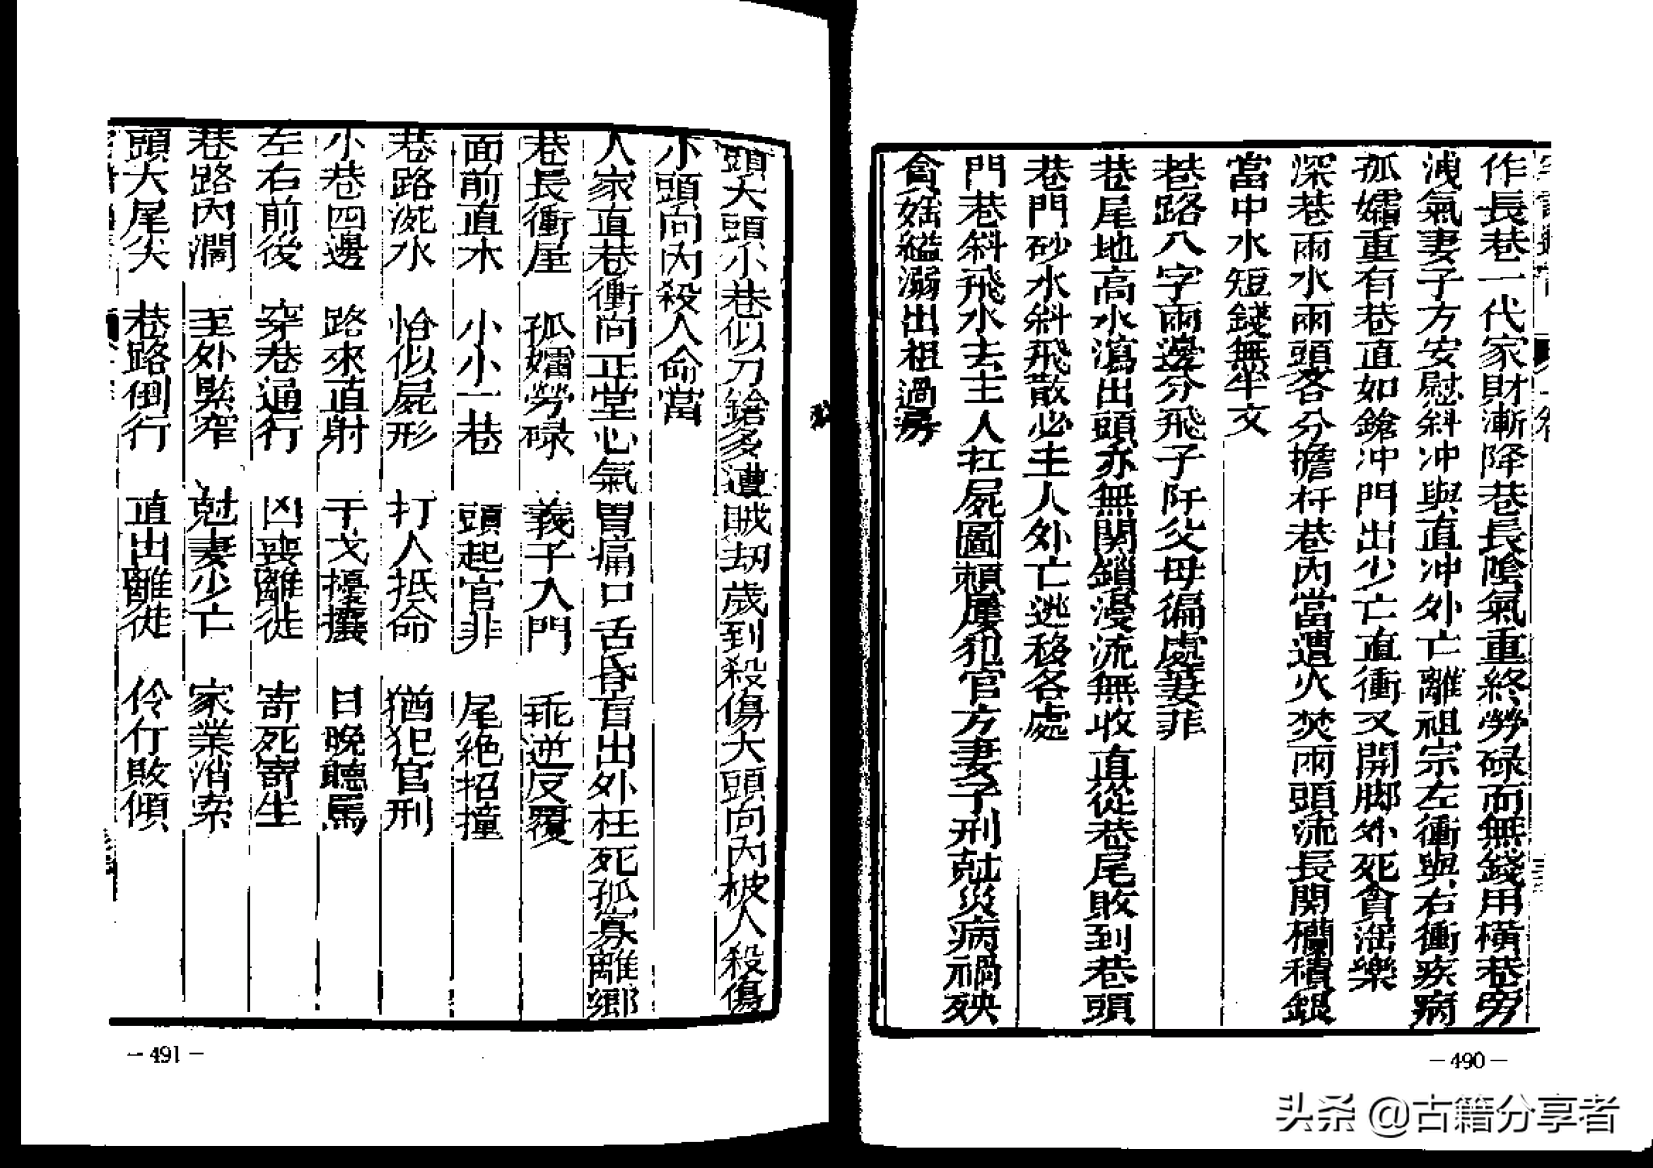 作長巷一代家財漸降巷長陰氣重終勞碌而無錢用橫巷旁
洩氣妻子方安慰斜冲與直冲外亡離祖宗左衝與右衝疾病
孤孀重有巷直如鎗冲門出少亡直衝又開脚外死貪滛樂
深巷雨水兩頭各分擔杆巷內當遭火焚兩頭流長開欄積銀
當中水短錢無半文
巷路八字兩邊分飛子阡父母徧處妻菲
巷尾地高水瀉出頭亦無関鎖漫流無收直從巷尾敗到巷頭
巷門砂水斜飛散必主人外亡逃移各處
門巷斜飛水去主人扛屍圖頼屢犯官方妻子刑尅災病禍殃
貪婬縊溺出祖過房
－490－
頭大頭小巷似刀鎗多遭賊刼歲到殺傷大頭向內被人殺傷
小頭向內殺人命當
人家直巷衝向正堂心氣胃痛口舌昏盲出外枉死孤寡離鄉
巷長衝屋 孤孀勞碌 義子入門 乖逆反覆
面前直木 小小一巷 頭起官非 尾絶招撞
巷路泥水 恰似屍形 打人抵命 猶犯官刑
小巷四邊 路來直射 干戈擾攘 日晚聽罵
左右前後 穿巷通行 凶喪離徙 寄死寄生
巷路內濶 主外緊窄 尅妻少亡 家業消索
頭大尾尖 巷路倒行 直出離徙 伶仃敗傾
－491－
头条 @古籍分享者